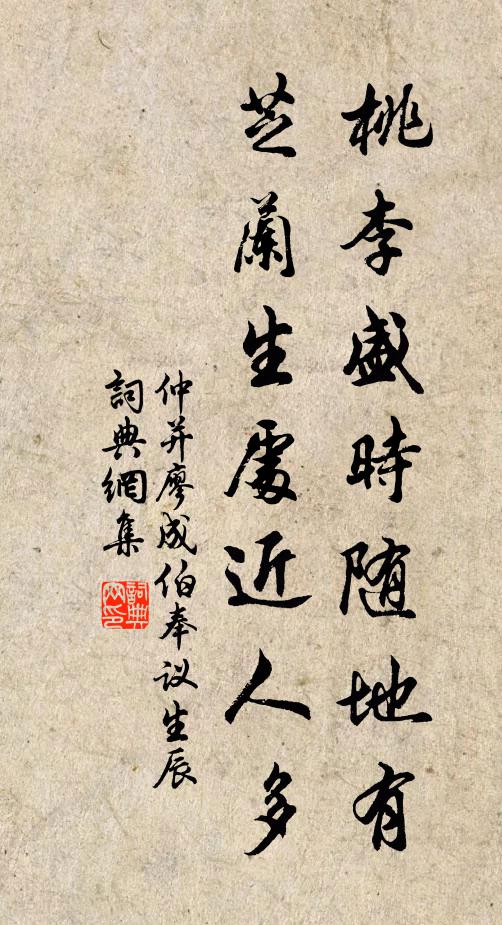 桃李盛時随地有
芝蘭生處近人多
仲并廖成伯奉议生辰
詞典網集
詞典網印